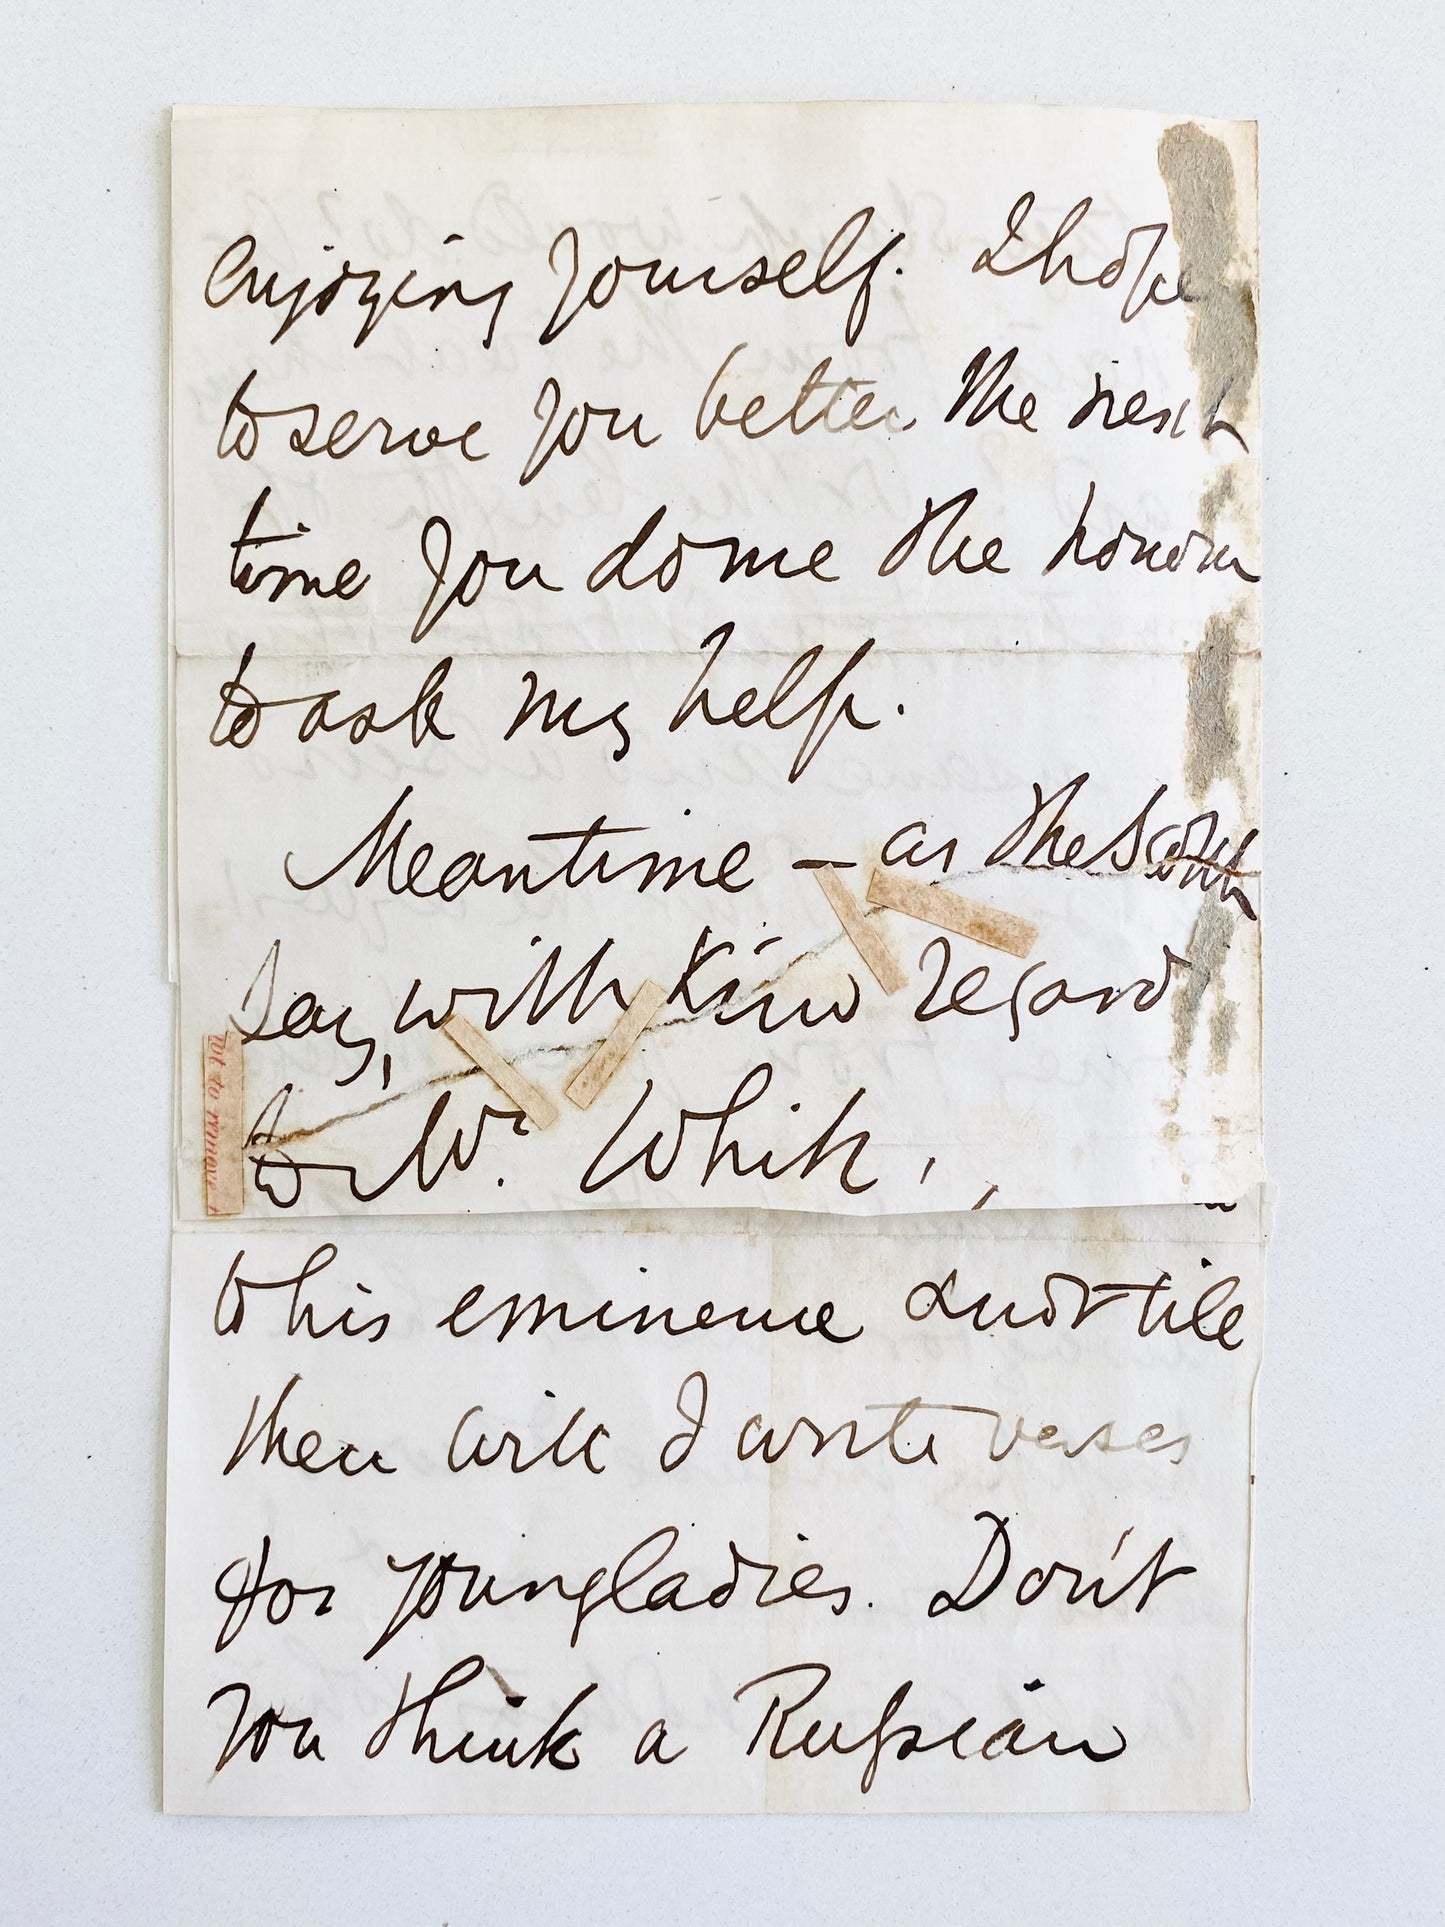 enjoying yourself. I hope
to serve you better the next
time you do me the honour
to ask my help.
Meantime — as the
say, with kind regard
to Mr. White,
not to remove
to his eminence
then will I write verses
for young ladies. Don't
you think a Russian